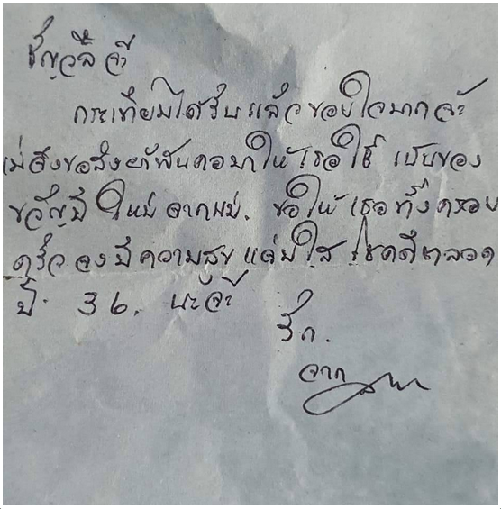 ขวัญวลี จ๋า
กระเทียมได้รับแล้วขอบใจมากจ้ะ
แม่สิงขอส่งผ้าพันคอมาให้เธอใช้ เป็นของ
ขวัญปีใหม่ จากแม่. ขอให้ เธอทั้งครอบ
ครัว จงมีความสุข แจ่มใส โชคดีตลอด
ปี 36. นะจ๊ะ
รัก.
จาก